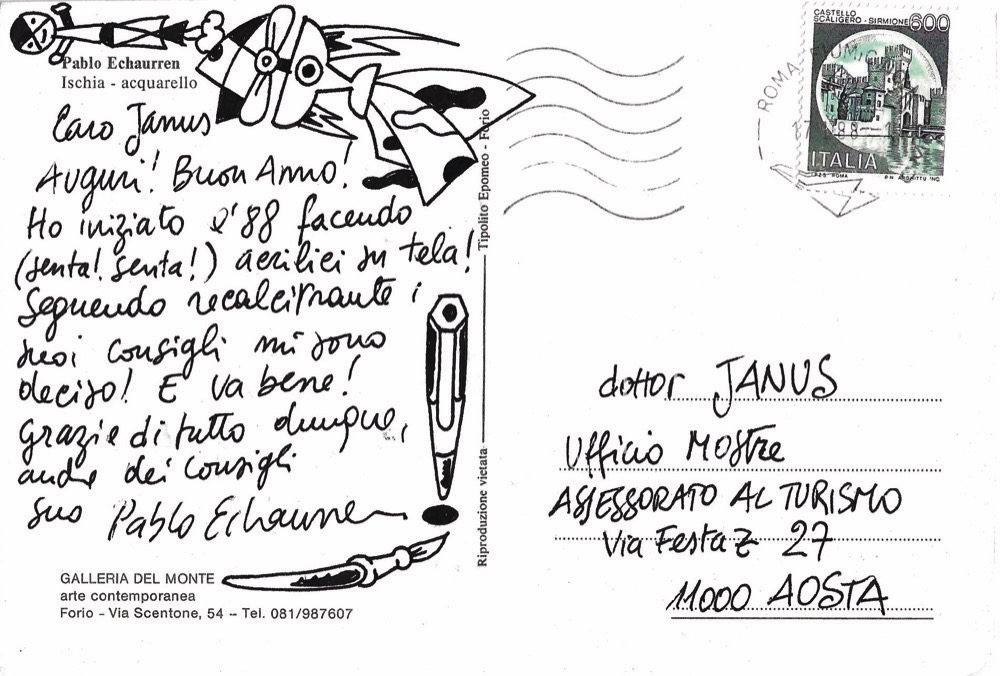 Pablo Echaurren
Ischia - acquarello
Caro Janus
Auguri! Buon Anno!
Ho iniziato l'88 facendo
(senta! senta!) acrilici su tela!
Seguendo recalcitrante i
suoi consigli mi sono
deciso! E va bene!
Grazie di tutto dunque,
anche dei consigli
suo Pablo Echaurren
GALLERIA DEL MONTE
arte contemporanea
Forio - Via Scentone, 54 – Tel. 081/987607
Riproduzione vietata
Tipolito Epomeo - Forio
CASTELLO
SCALIGERO - SIRMIONE 600
ITALIA
I.P.Z.S. ROMA
ROMA-FIUMICINO
dottor JANUS
Ufficio Mostre
ASSESSORATO AL TURISMO
Via Festaz 27
11000 AOSTA